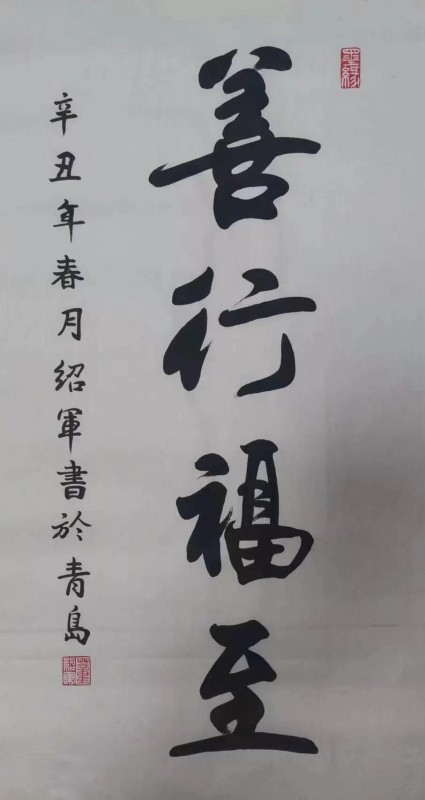 墨缘
善行福至
辛丑年春月绍軍書於青島